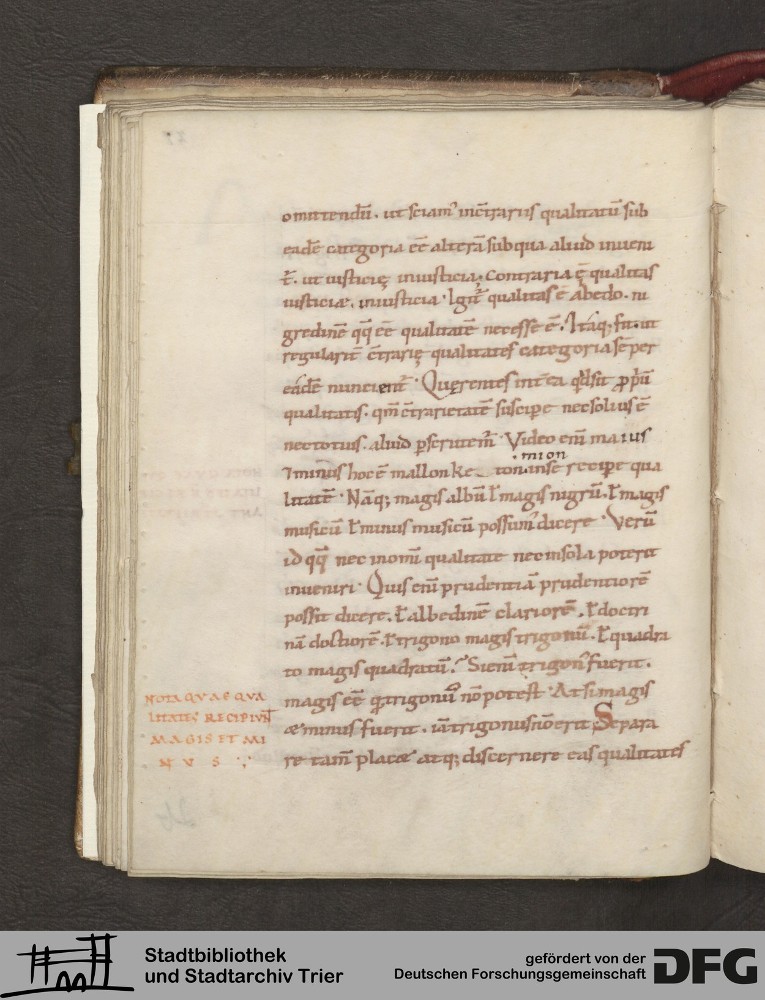 omittendū. ut sciam' inc̄trariis qualitatū sub
eadē categoria eē alterā sub qua aliud inueni
t̄. ut iusticię iniusticia. Contraria ę̄ qualitas
iusticiae. iniusticia. Igit̄ qualitas ē abedo. ni
gredinē qq̄ eē qualitatē necesse ē. Itaq; fit. ut
regularit̄ c̄trarię qualitates categoria sēper
eadē nuncient̄. Querentes int̄ ea qd̄ sit ꝓp̄ū
qualitatis. qm̄ c̄trarietatē suscipe nec solius ē
nec totius. aliud pscrutem'. Video eni ma ius
⁊ minus hoc ē mallon ke tonanse recipe qua
mion
litatē. Nāq; magis albū ł magis nigrū. ł magis
musicū ł minus musicū possum' dicere. Verū
id qq̄ nec in omi qualitate nec in sola poterit
inueniri. Quis eni prudentiā prudentiorē
possit dicere. ł albedinē clariorē. ł doctri
nā doctiorē. ł trigono magis trigonū. ł quadra
to magis quadratū? Si eni trigon' fuerit.
magis eē q̄ trigonū nō potest. At si magis
& minus fuerit. iā trigonus nō erit; Separa
re tam placet atq; discernere eas qualitates
NOTA QVAE QVA
LITATES RECIPIVNT
MAGIS ET MI
NVS
Stadtbibliothek
und Stadtarchiv Trier
gefördert von der
Deutschen Forschungsgemeinschaft
DFG